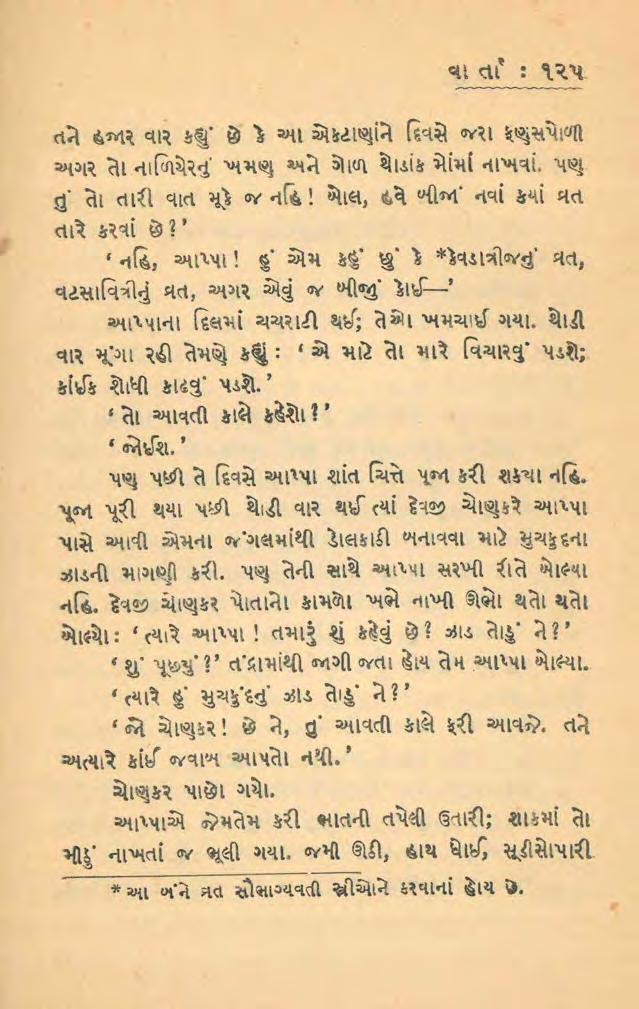 વાર્તા : ૧૨૫
તને હજાર વાર કહ્યું છે કે આ એકટાણાંને દિવસે જરા ફણુસપોળી
અગર તો નાળિયેરનું ખમણ અને ગોળ થોડાંક મોંમાં નાખવાં. પણ
તું તો તારી વાત મૂકે જ નહિ! બોલ, હવે બીજાં નવાં કયાં વ્રત
તારે કરવાં છે?’
‘નહિ, આપ્પા! હું એમ કહું છું કે *કેવડાત્રીજનું વ્રત,
વટસાવિત્રીનું વ્રત, અગર એવું જ બીજું કોઈ—’
આપ્પાના દિલમાં ચચરાટી થઈ; તેઓ ખમચાઈ ગયા. થોડી
વાર મૂંગા રહી તેમણે કહ્યું: ‘એ માટે તો મારે વિચારવું પડશે;
કાંઈક શોધી કાઢવું પડશે.’
‘તો આવતી કાલે કહેશો?’
‘જોઈશ.’
પણ પછી તે દિવસે આપ્પા શાંત ચિત્તે પૂજા કરી શક્યા નહિ.
પૂજા પૂરી થયા પછી થોડી વાર થઈ ત્યાં દેવજી ચોણકરે આપ્પા
પાસે આવી એમના જંગલમાંથી ડોલકાડી બનાવવા માટે મુચકુંદના
ઝાડની માગણી કરી. પણ તેની સાથે આપ્પા સરખી રીતે બોલ્યા
નહિ. દેવજી ચોણકર પોતાનો કામળો ખભે નાખી ઊભો થતો થતો
બોલ્યો: ‘ત્યારે આપ્પા! તમારું શું કહેવું છે? ઝાડ તોડું ને?’
‘શું પૂછ્યું?’ તંદ્રામાંથી જાગી જતા હોય તેમ આપ્પા બોલ્યા.
‘ત્યારે હું મુચકુંદનું ઝાડ તોડું ને?’
‘જો ચોણકર! છે ને, તું આવતી કાલે ફરી આવજે. તને
અત્યારે કાંઈ જવાબ આપતો નથી.’
ચોણકર પાછો ગયો.
આપ્પાએ જેમતેમ કરી ભાતની તપેલી ઉતારી; શાકમાં તો
મીઠું નાખતાં જ ભૂલી ગયા. જમી ઊઠી, હાથ ધોઈ, સૂડીસોપારી
*આ બંને વ્રત સૌભાગ્યવતી સ્ત્રીઓને કરવાનાં હોય છે.